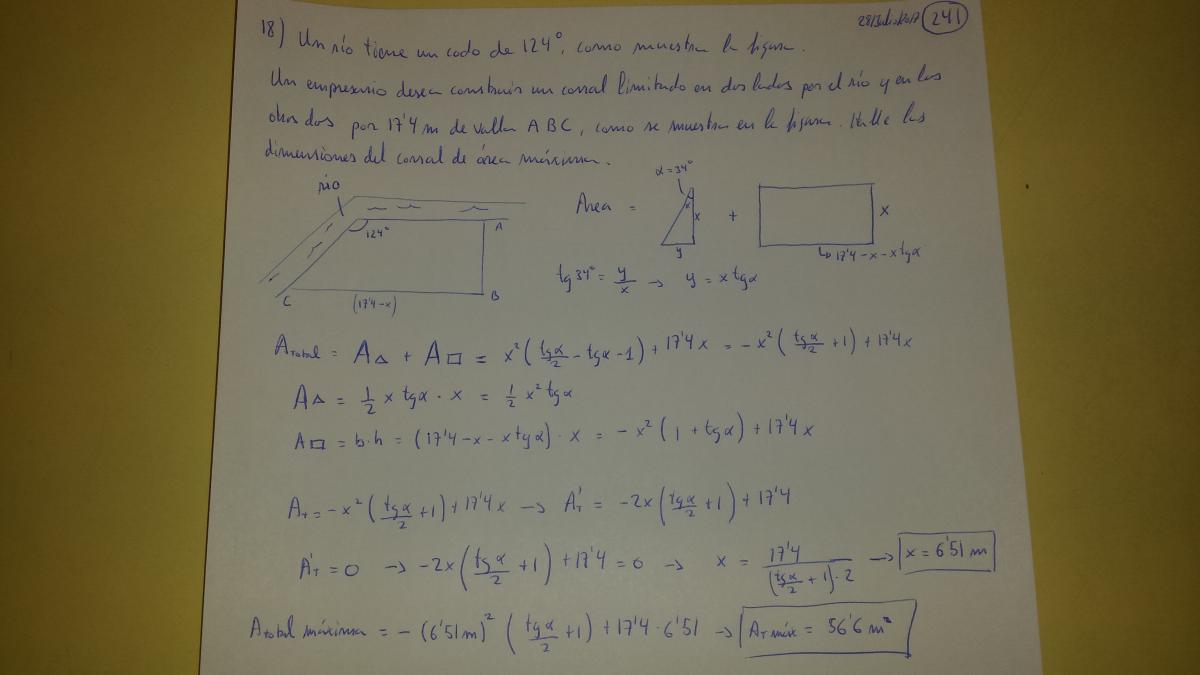 28/Julio/2017 241
18) Un río tiene un codo de 124°, como muestra la figura.
Un empresario desea construir un corral limitado en dos lados por el río y en los
otros dos por 17'4 m de valla ABC, como se muestra en la figura. Halle las
dimensiones del corral de área máxima.
río
124°
A
B
C
(17'4-x)
Area = α=34° α x y + x 17'4-x-xtgα
tg34° = y/x → y = x tgα
Atotal = A△ + A□ = x²(tgα/2 - tgα - 1) + 17'4x = -x²(tgα/2 + 1) + 17'4x
A△ = 1/2 x tgα · x = 1/2 x² tgα
A□ = b·h = (17'4 - x - x tgα) · x = -x²(1 + tgα) + 17'4x
AT = -x²(tgα/2 + 1) + 17'4x → A'T = -2x(tgα/2 + 1) + 17'4
A'T = 0 → -2x(tgα/2 + 1) + 17'4 = 0 → x = 17'4/(tgα/2 + 1)·2 → x = 6'51 m
Atotal máxima = -(6'51m)²(tgα/2 + 1) + 17'4 · 6'51 → AT máx = 56'6 m²